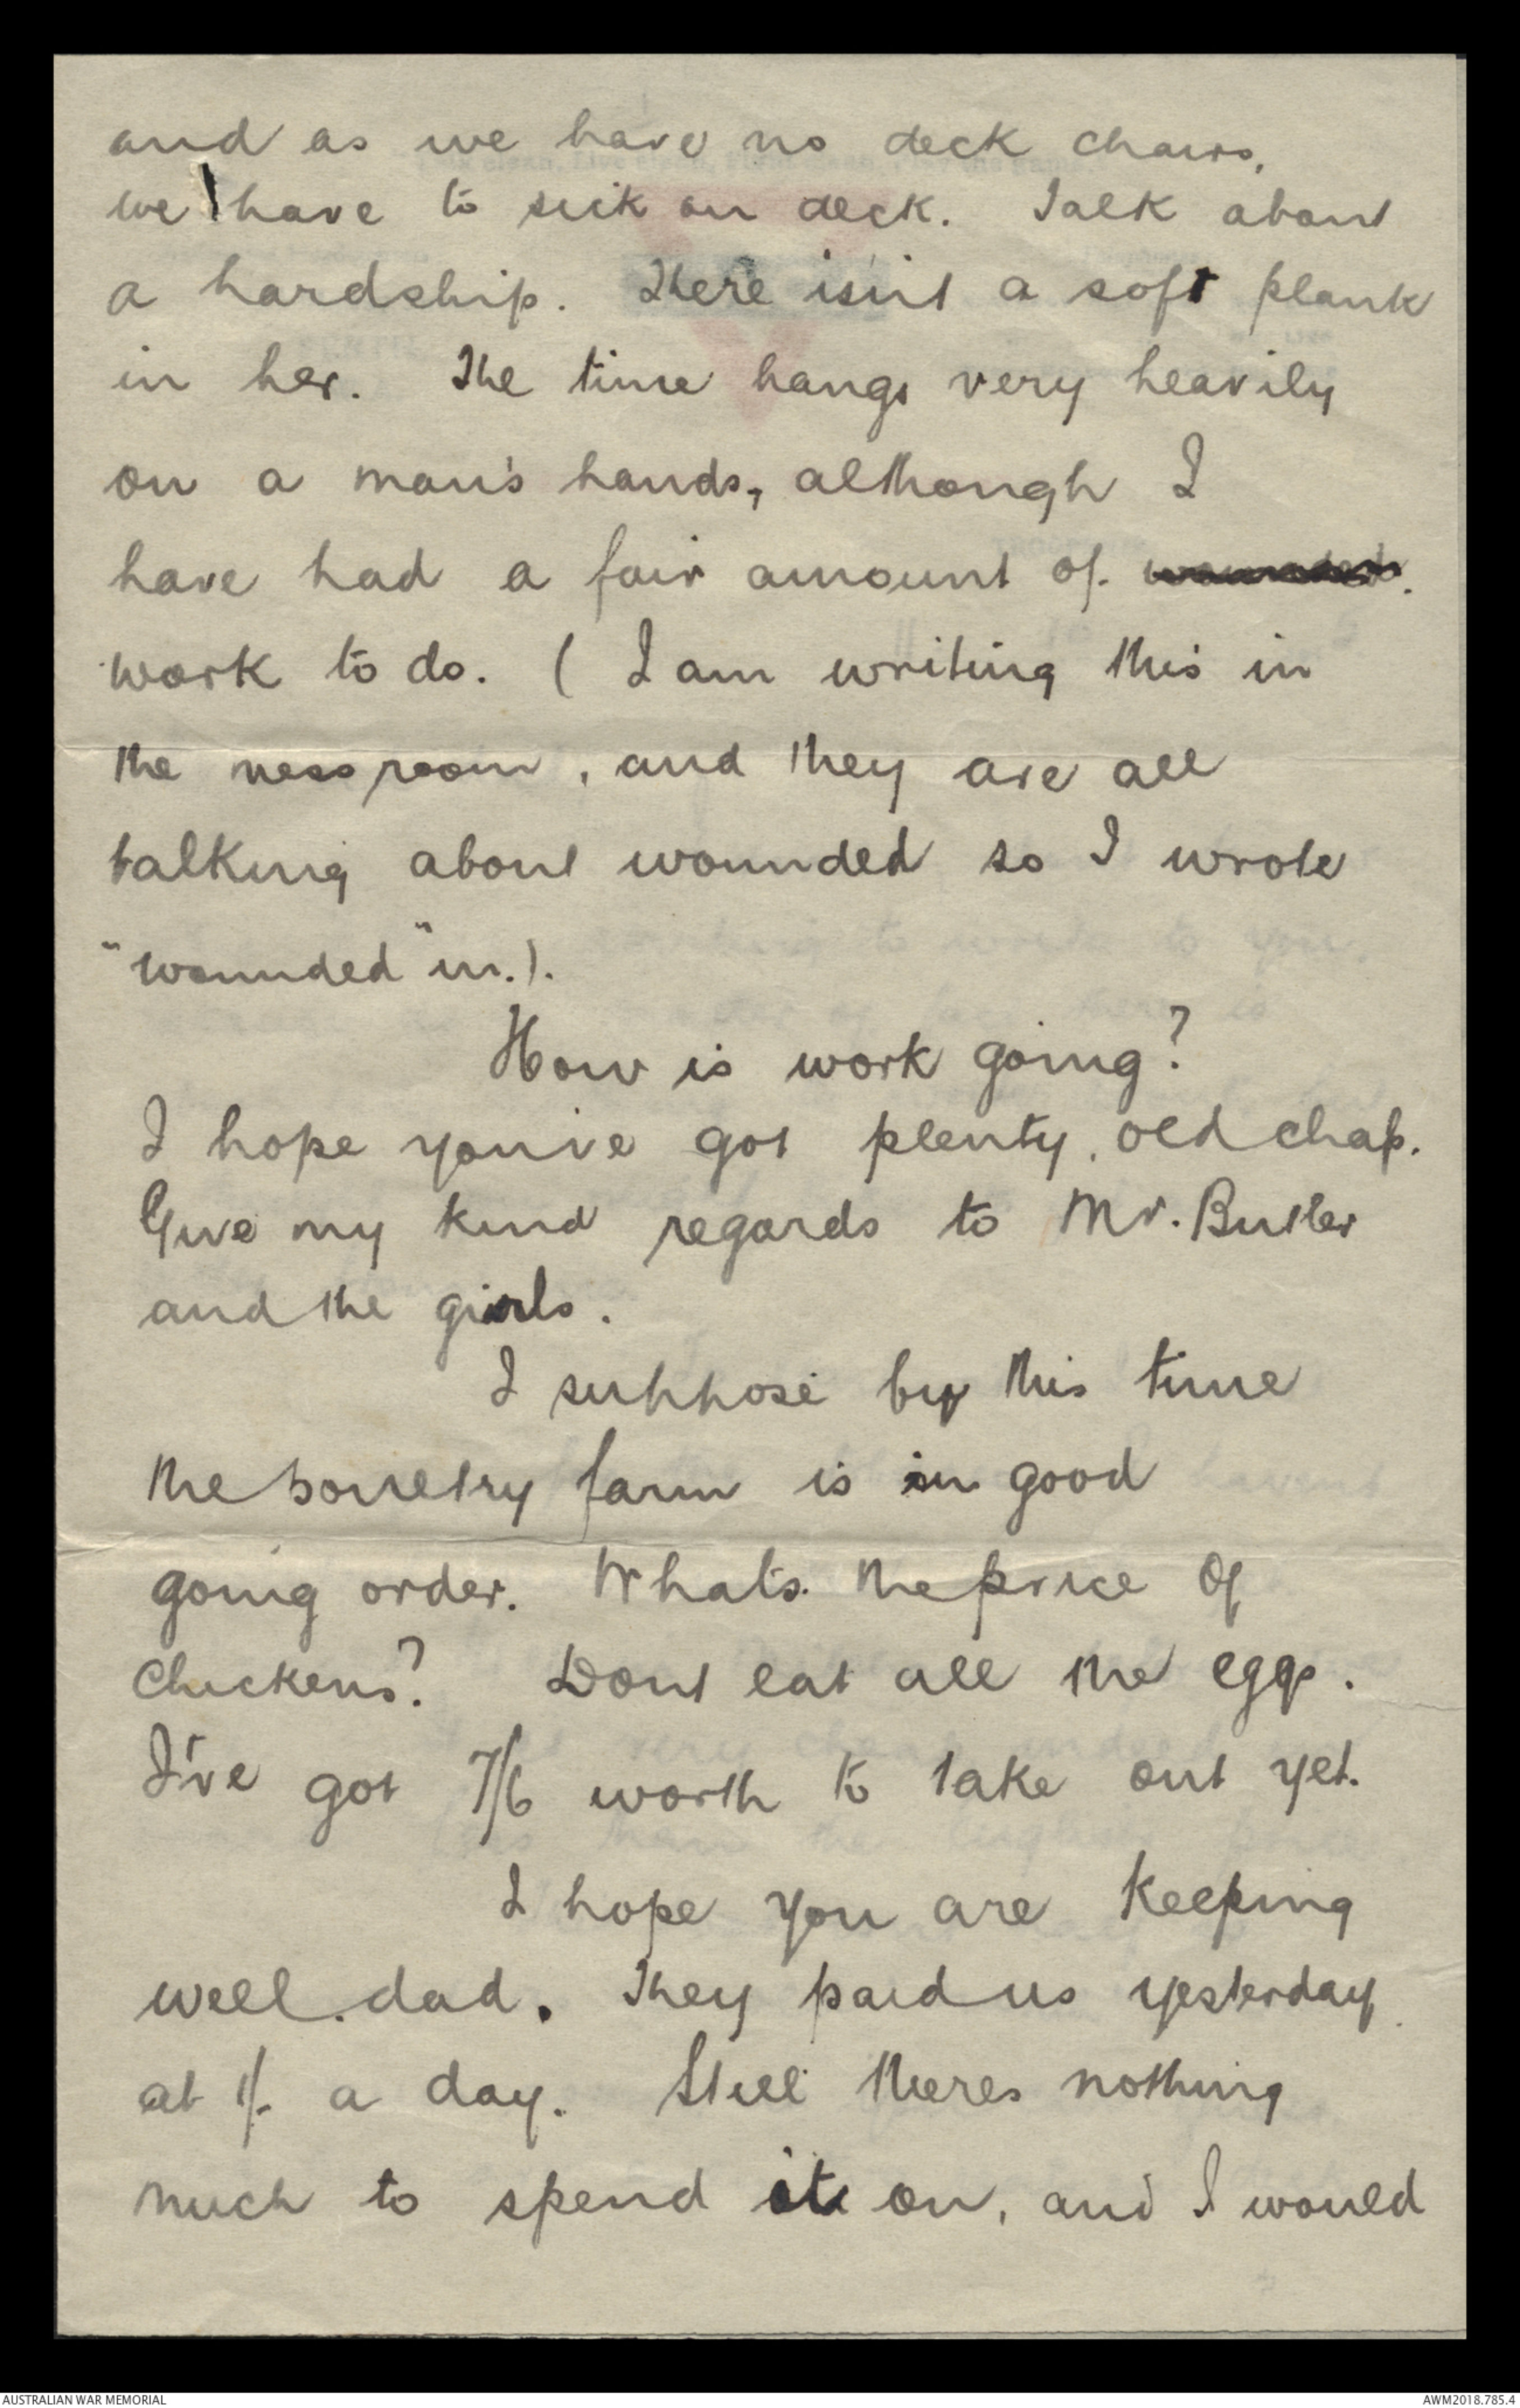 and as we have no deck chairs,
we have to sick on deck. Talk about
a hardship. There isn't a soft plank
in her. The time hangs very heavily
on a man's hands, although I
have had a fair amount of wounded.
work to do. ( I am writing this in
the mess room, and they are all
talking about wounded so I wrote
"wounded" in.).
How is work going?
I hope you've got plenty, old chap.
Give my kind regards to Mr. Butler
and the girls.
I suppose by this time
the poultry farm is in good
going order. What's the price of
Chickens? Dont eat all the eggs.
I've got 7/6 worth to take out yet.
I hope you are keeping
well. dad. They paid us yesterday
at 1/- a day. Still theres nothing
much to spend it on, and I would
AUSTRALIAN WAR MEMORIAL
AWM2018.785.4